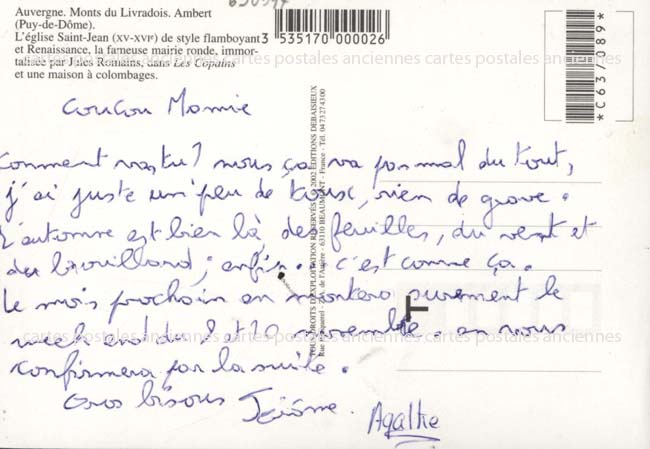 Auvergne. Monts du Livradois. Ambert
(Puy-de-Dôme).
L'église Saint-Jean (XV-XVIe) de style flamboyant
et Renaissance, la fameuse mairie ronde, immor-
talisée par Jules Romains, dans Les Copains
et une maison à colombages.
3 535170 000026
*C63/089*
cartes postales anciennes cartes postales anciennes cartes postales anciennes
TOUS DROITS D'EXPLOITATION RÉSERVÉS © 2002 ÉDITIONS DEBAISIEUX
63110 BEAUMONT - France - Tél. 0473274300
Coucou Mamie
Comment vas tu? nous ça va pas mal du tout,
j'ai juste un peu de toux, rien de grave.
L'automne est bien là, des feuilles, du vent et
du brouillard, enfin.. c'est comme ça.
Le mois prochain on montera surement le
week end du et 10 novembre. on vous
confirmera par la suite.
Gros bisous Jérôme. Agathe
T
cartes postales anciennes cartes postales anciennes cartes postales anciennes